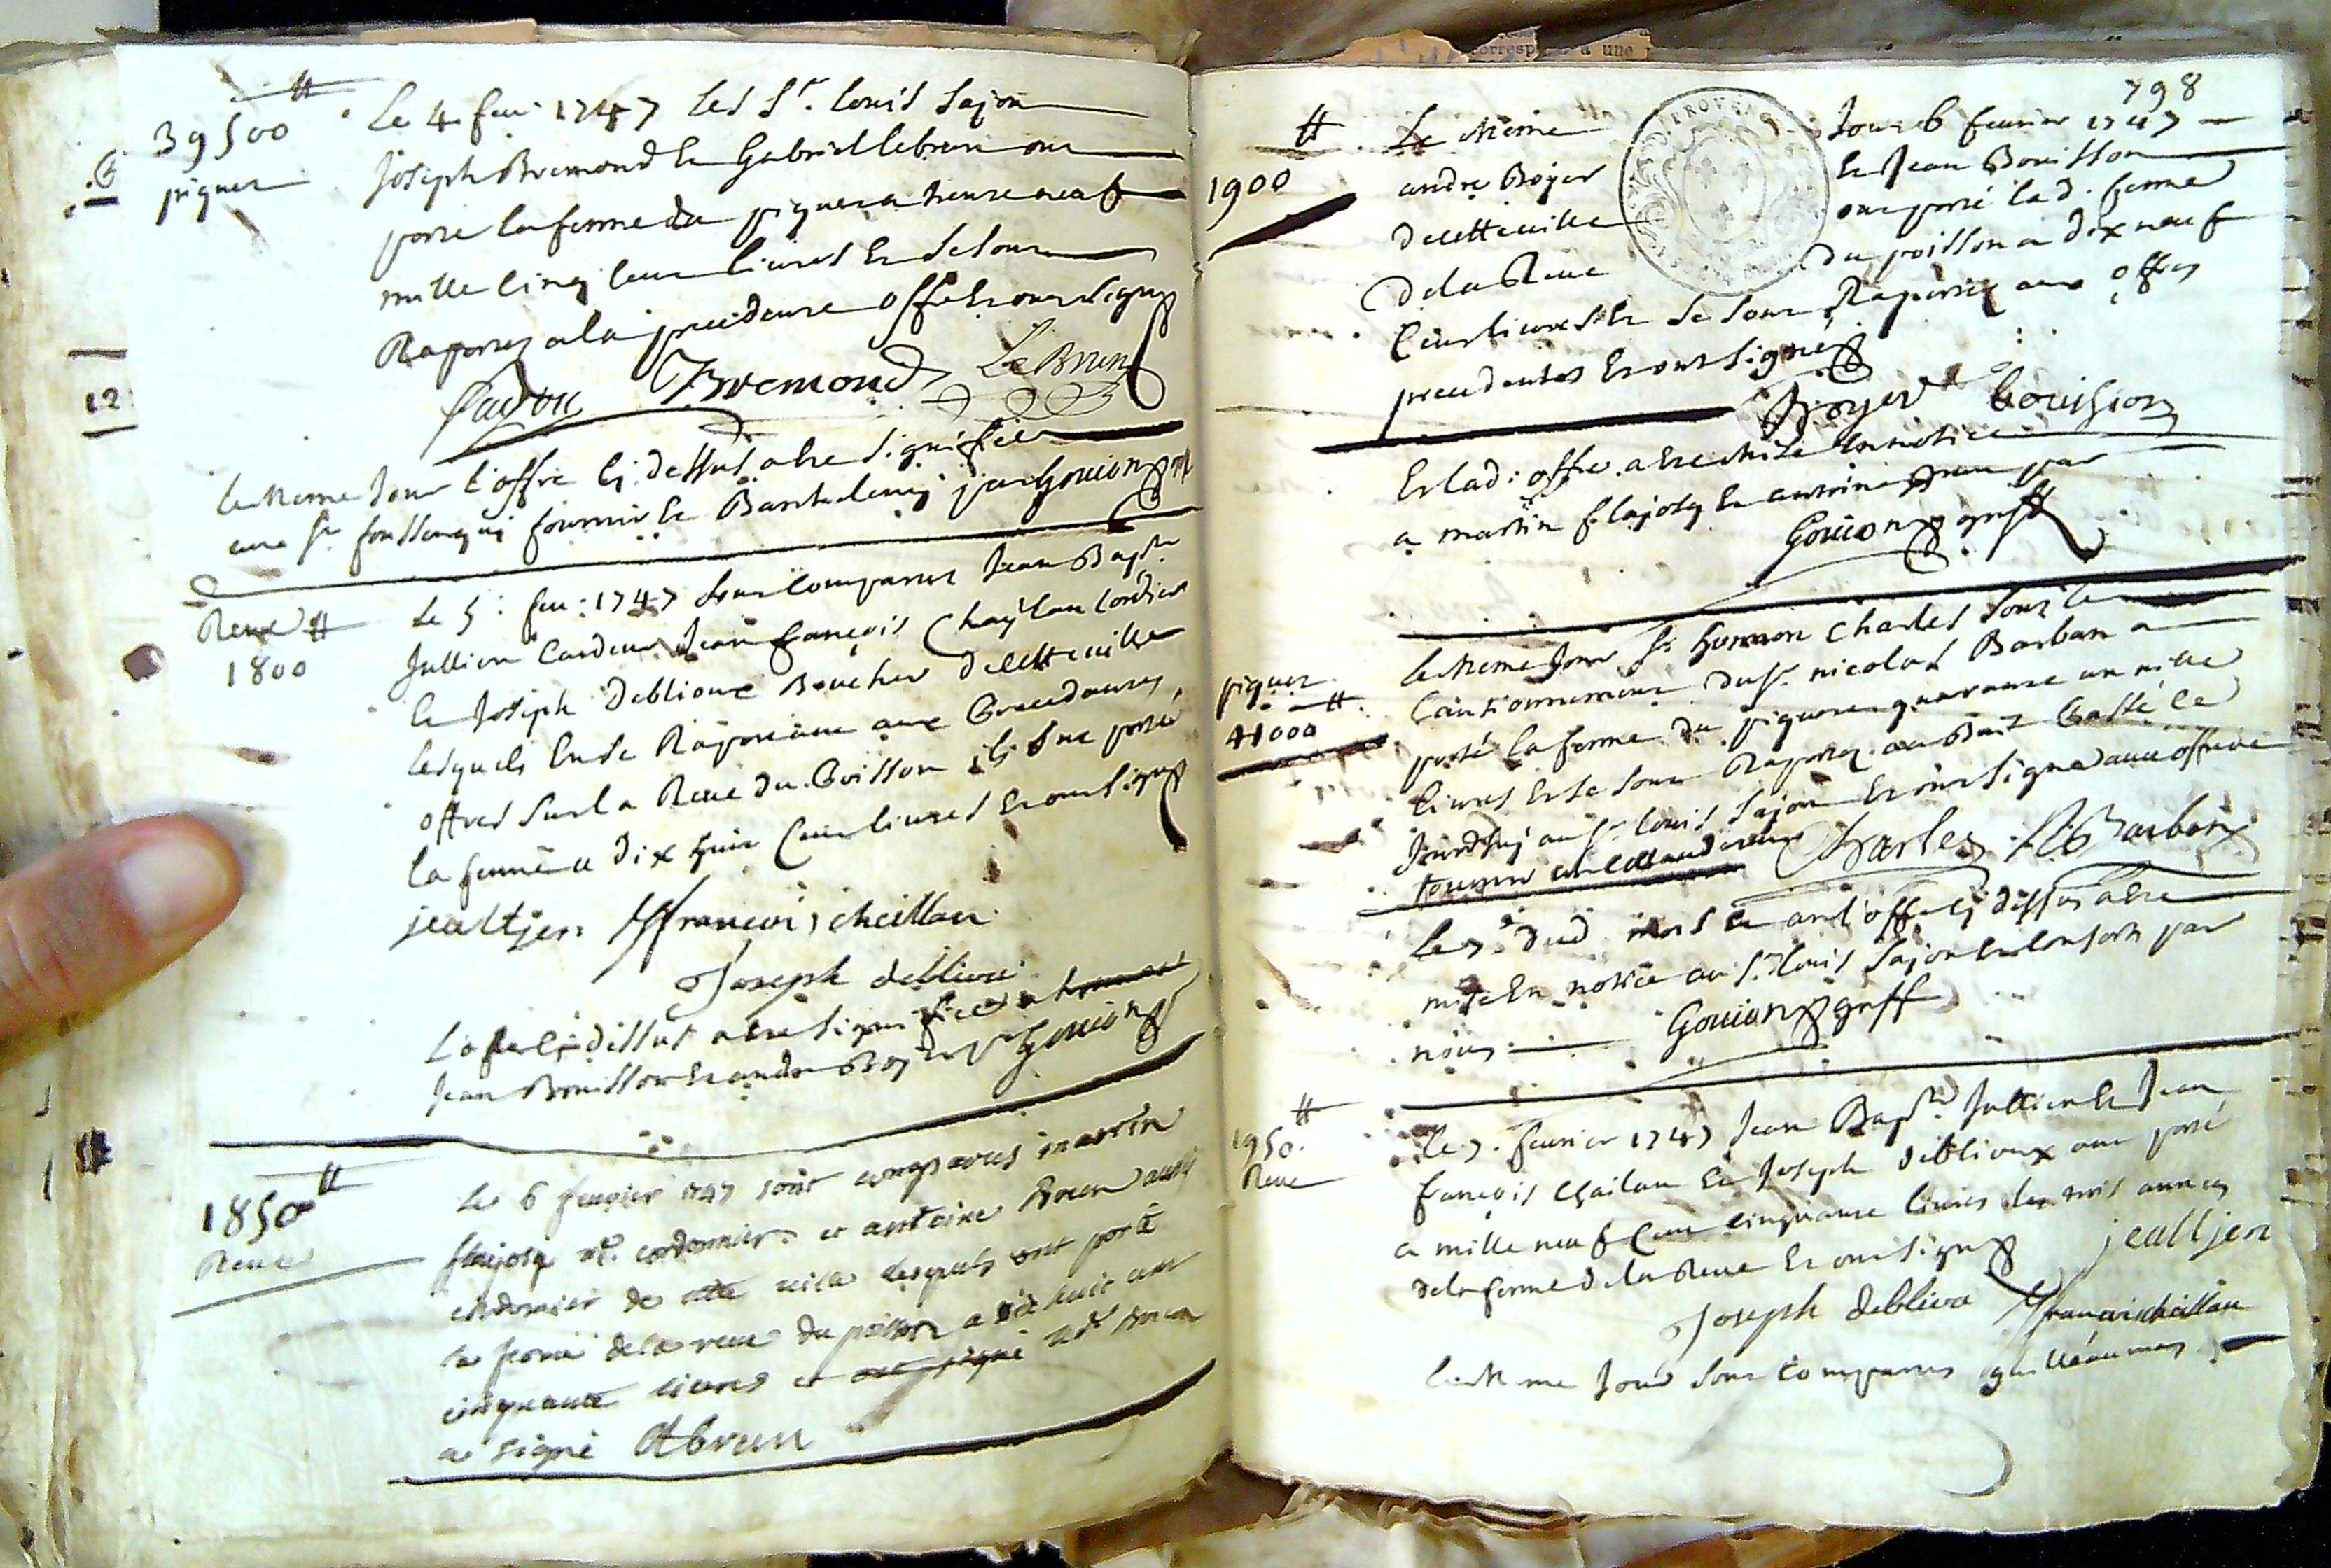 39500 ₶
piquet
Le 4 feu: 1747 les Sr. louis sajon
Joseph Bremond Et Gabriel lebrun ont
porté la ferme du piquet a trente neuf
mille cinq cent livres Et se sont
Raportez a la precedente offre Et ont signez
Bremond LeBrun
le meme Jour l'offre cy dessus a etre signifiée
aux Srs fournier Et Barthelemy par Gouion
Reue ₶
1800
Le 5: feu: 1747 sont comparus Jean Bapte
Jullien Cardeur Jean françois Chaylan Cordier
Et Joseph Deblioux Boucher de cette ville
lesquels En se Raportant aux Precedentes
offres sur la Reue du Poisson ils ont porté
la ferme a dix huit Cent livres Et ont signez
jealtjen ffrancois cheillan
Joseph deblioux
L'offre cy dessus a etre signifiée a
Jean Bouisson Et andre Boyer pr Gouion
1850 ₶
Reue
Le 6 feurier 1747 sont comparus martin
flajosq me. cordonnier et antoine Brun aussi
cordonnier de cette ville lesquels ont porté
la ferme de la reue du poisson a dix huit cent
cinquante livres et ont signé led. Brun
a signé ABrun
798
1900 ₶
Le Meme Jour 6 feurier 1747
andre Boyer Et Jean Bouisson
de cette ville ont porté lad. ferme
de la Reue du poisson a dix neuf
Cent livres Et se sont Raportez aux offres
precedentes Et ont signez
Boyer bouisson
Et lad: offre a etre mise En notice
a martin flajosq Et antoine Brun par
Gouion greff
piquet ₶
41000
le meme Jour Sr honnoré Charles sous le
Cautionnement du Sr. nicolas Barban a
porté la ferme du piquet a quarante un mille
livres Et se sont Raportez au Bail passé le
Jourd'huy au Sr louis sajon Et ont signé aux offres de
Charles Barban
Le 7e dud. mois Et an l'offre cy dessus a etre
mise En notice au Sr. louis sajon Et consorts par
nous Gouion greff
1950 ₶
Reue
Le 7. feurier 1747 Jean Bapte. Jullien Et Jean
françois Chailan Et Joseph deblioux ont porté
a mille neuf Cent cinquante livres les trois années
de la ferme de la Reue Et ont signez jealtjen
Joseph deblioux ffrancois cheillan
le Meme Jour sont comparus guilleaumes